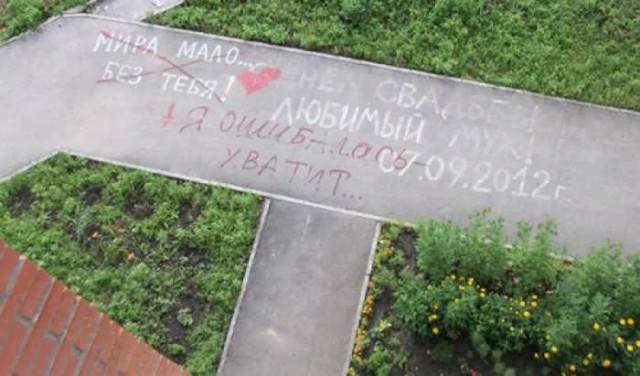 МИРА МАЛО...
БЕЗ ТЕБЯ!
СВАДЬБЫ
ЛЮБИМЫЙ МУЖ
07.09.2012г.
Я ОШИБАЛАСЬ
УВАТИТ...